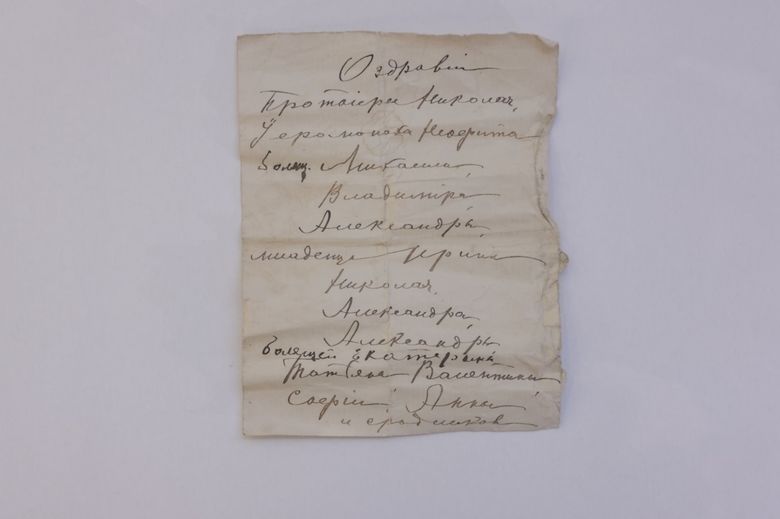 О здравіи
Протоіерея Николая,
Іеромонаха Неофита
болящ. Михаила,
Владиміра,
Александры,
младенца Ирины
Николая,
Александра,
Александры
болящей Екатерины
Татьяны Валентины
Софіи, Анны,
и сродников